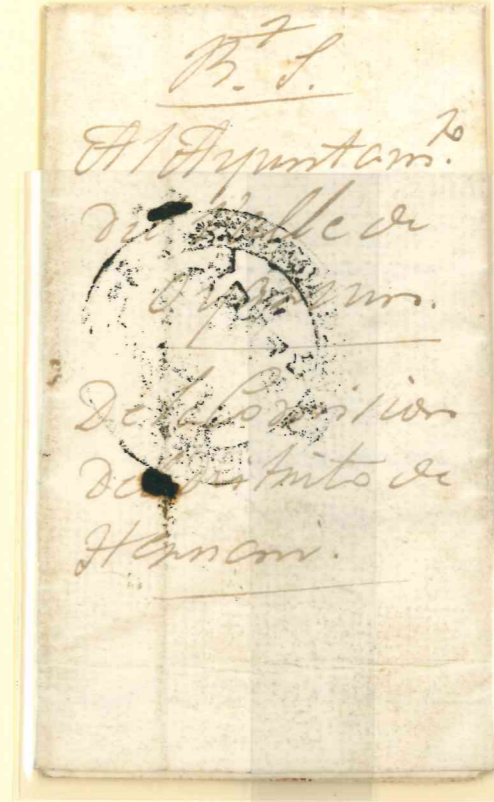 Rl S.
Al Ayuntamto
del Valle de
Oyarzun.
De la Comision
del distrito de
Hernani.